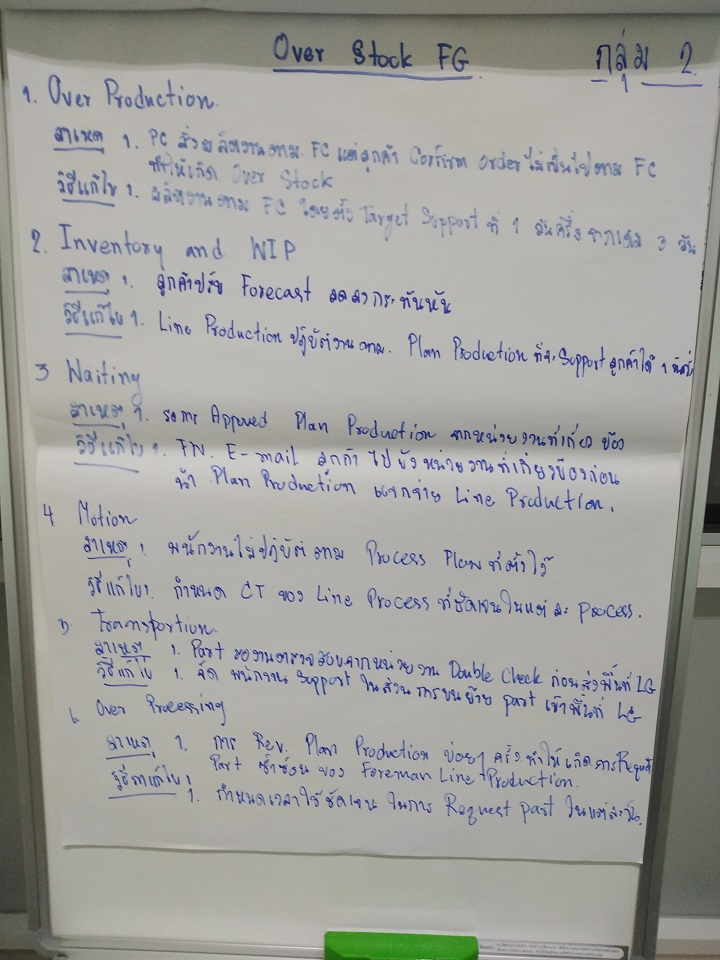 Over Stock FG กลุ่ม 2
1. Over Production.
สาเหตุ 1. PC สั่งผลิตงานตาม FC แต่ลูกค้า Confirm order ไม่เป็นไปตาม FC
ทำให้เกิด Over Stock
วิธีแก้ไข 1. ผลิตงานตาม FC โดยตั้ง Target Support ที่ 1 วันครึ่ง จากเดิม 3 วัน
2. Inventory and WIP
สาเหตุ 1. ลูกค้าปรับ Forecast ลดลงกระทันหัน
วิธีแก้ไข 1. Line Production ปฏิบัติงานตาม. Plan Production ที่จะ Support ลูกค้าได้ 1 วันครึ่ง
3 Waiting
สาเหตุ 1. รอการ Approved Plan Production จากหน่วยงานที่เกี่ยวข้อง
วิธีแก้ไข 1. FN. E-mail ลูกค้า ไปยังหน่วยงานที่เกี่ยวข้องก่อน
นำ Plan Production แจกจ่าย Line Production.
4 Motion
สาเหตุ 1. พนักงานไม่ปฏิบัติตาม Process Flow ที่ตั้งไว้
วิธีแก้ไข 1. กำหนด CT ของ Line Process ที่ชัดเจนในแต่ละ process.
5 Transportion.
สาเหตุ 1. Part รองานตรวจสอบจากหน่วยงาน Double Check ก่อนส่งพื้นที่ LG
วิธีแก้ไข 1. จัด พนักงาน Support ในส่วนการขนย้าย part เข้าพื้นที่ LG
6 Over Processing
สาเหตุ 1. การ Rev. Plan Production บ่อยๆ ครั้ง ทำให้เกิดการ Request
Part ซ้ำซ้อน ของ Foreman Line Production.
วิธีการแก้ไข 1. กำหนดเวลาให้ชัดเจน ในการ Request part ในแต่ละวัน.